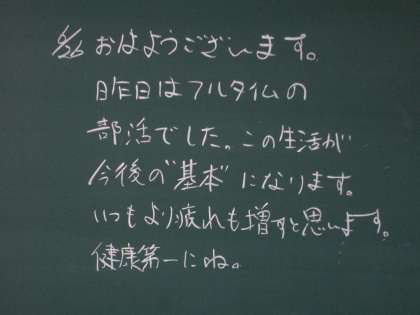 6/26 おはようございます。
昨日はフルタイムの
部活でした。この生活が
今後の"基本"になります。
いつもより疲れも増すと思います。
健康第一にね。